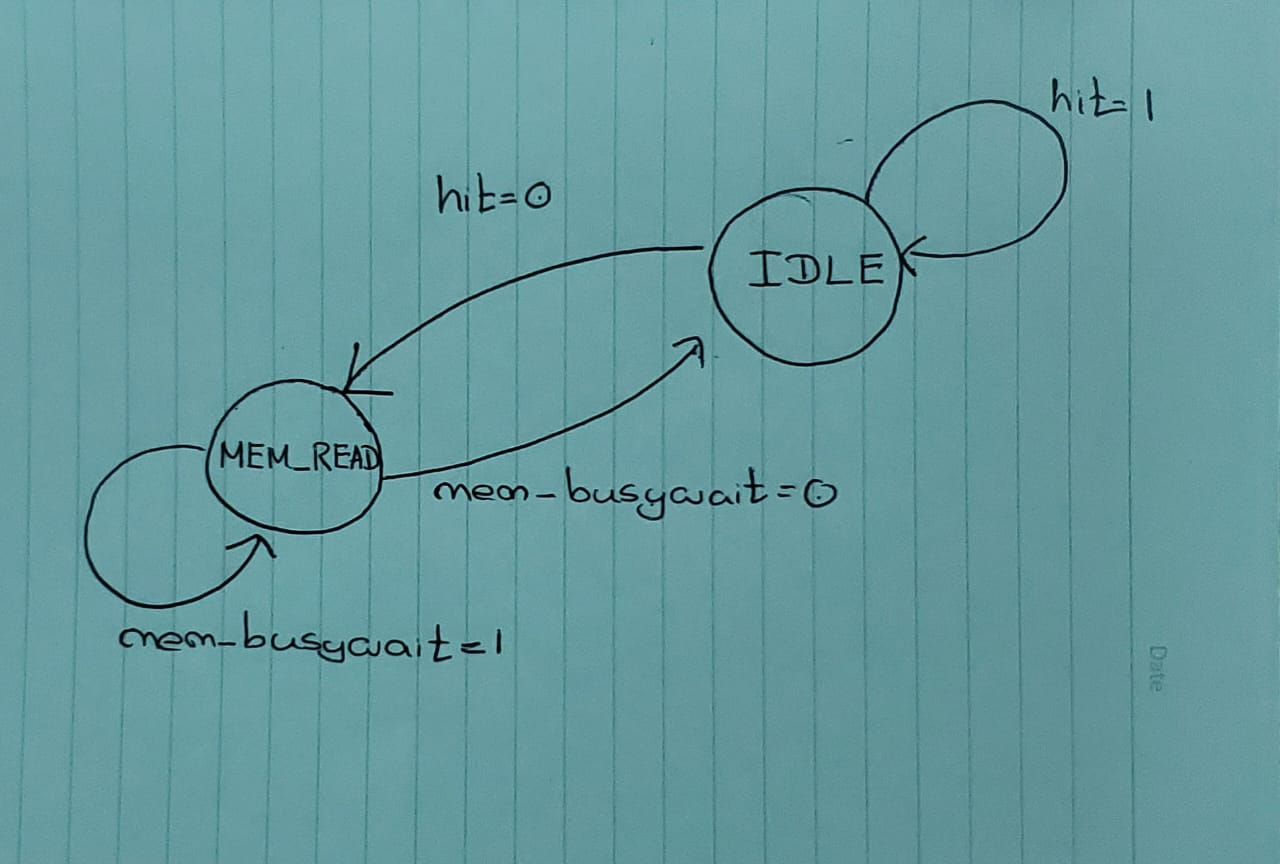 hit=1
hit=0
IDLE
MEM_READ
mem-busywait=0
mem-busywait=1
Date